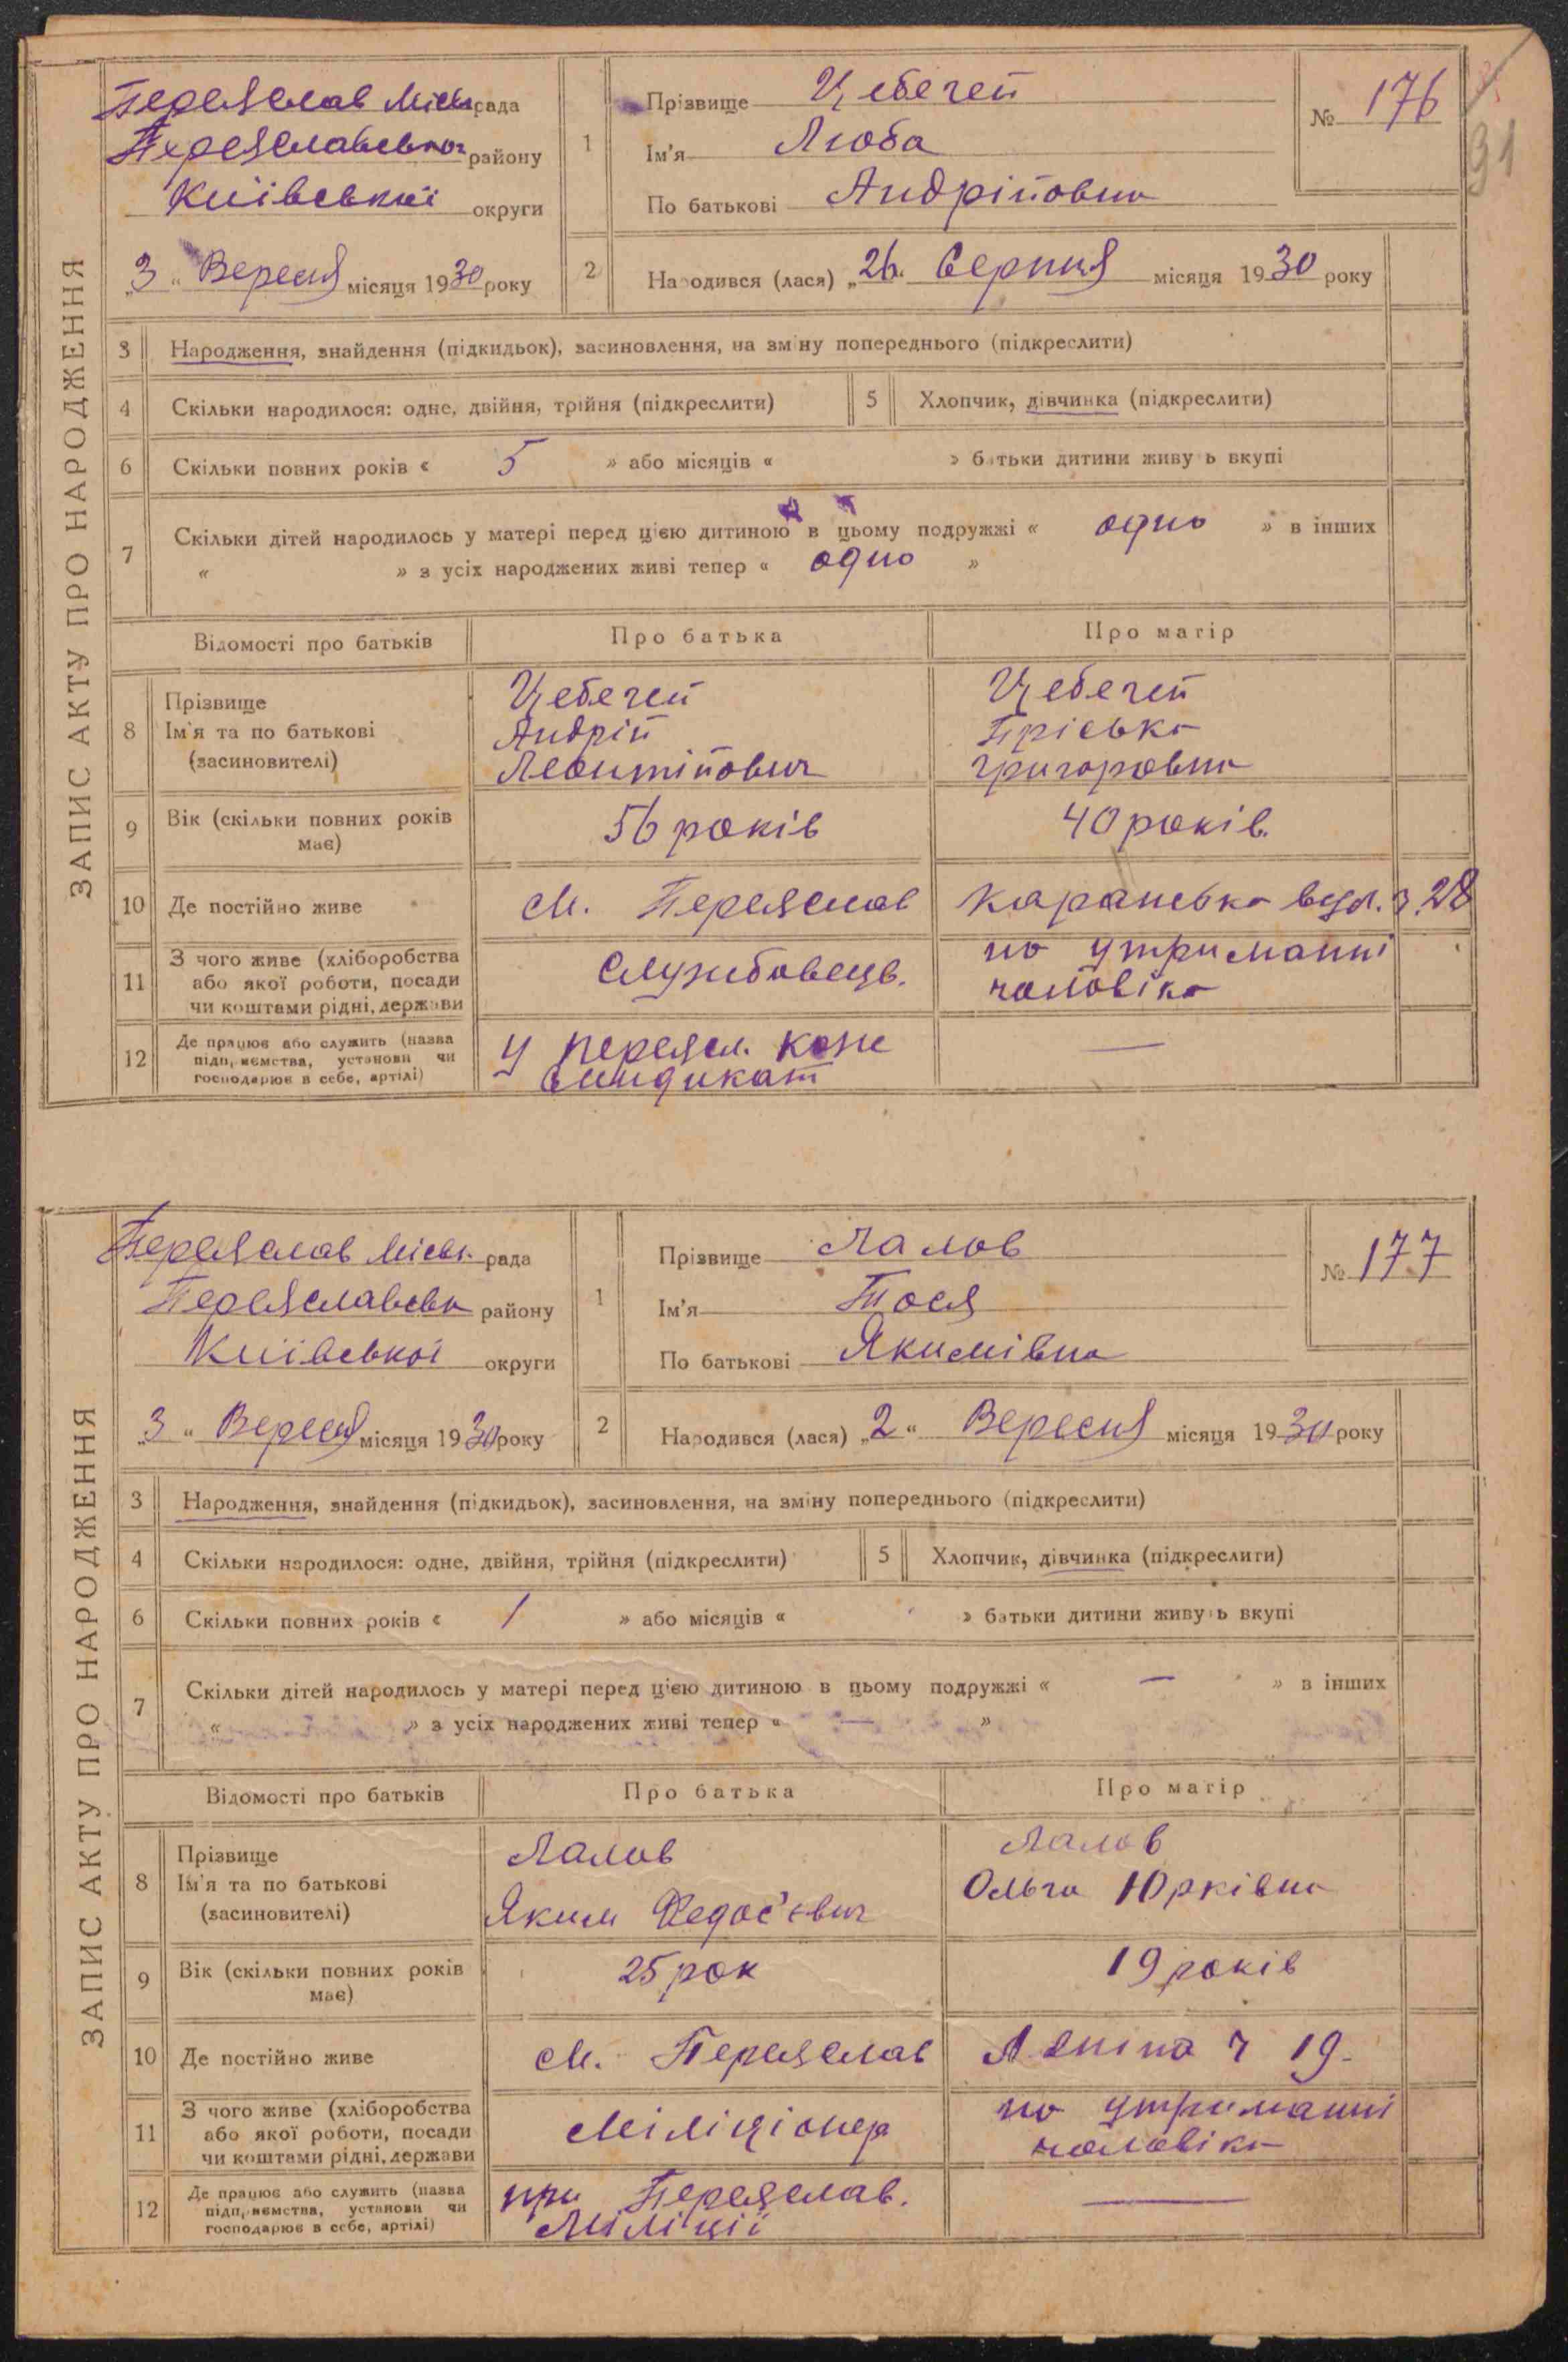 31
ЗАПИС АКТУ ПРО НАРОДЖЕННЯ
Переяслав Міськрада
Переяславськог району
Київської округи
„3“ Вересня місяця 1930 року
1
Прізвище Цебегей
Ім'я Люба
По батькові Андріповна
№ 176
2
Народився (лася) „26“ Серпня місяця 1930 року
3 Народження, знайдення (підкидьок), засиновлення, на зміну попереднього (підкреслити)
4 Скільки народилося: одне, двійня, трійня (підкреслити)
5 Хлопчик, дівчинка (підкреслити)
6 Скільки повних років « 5 » або місяців « » батьки дитини живуть вкупі
7 Скільки дітей народилось у матері перед цією дитиною в цьому подружжі « одно » в інших
« » з усіх народжених живі тепер « одно »
Відомості про батьків Про батька Про матір
8 Прізвище
Ім'я та по батькові
(засиновителі)
Цебегей
Андрій
Леонтійович
Цебегей
Пріська
Григоровна
9 Вік (скільки повних років має)
56 років
40 років.
10 Де постійно живе
м. Переяслав
Каранська вул. ч. 28
11 З чого живе (хліборобства
або якої роботи, посади
чи коштами рідні, держави
Службовець.
на утриманні
чоловіка
12 Де працює або служить (назва
підприємства, установи чи
господарює в себе, артілі)
У переясл. коже
синдикат
—
ЗАПИС АКТУ ПРО НАРОДЖЕННЯ
Переяслав Міськ. рада
Переяславськ району
Київської округи
„3“ Вересня місяця 1930 року
1
Прізвище Лалов
Ім'я Тося
По батькові Якимівна
№ 177
2
Народився (лася) „2“ Вересня місяця 1930 року
3 Народження, знайдення (підкидьок), засиновлення, на зміну попереднього (підкреслити)
4 Скільки народилося: одне, двійня, трійня (підкреслити)
5 Хлопчик, дівчинка (підкреслити)
6 Скільки повних років « 1 » або місяців « » батьки дитини живуть вкупі
7 Скільки дітей народилось у матері перед цією дитиною в цьому подружжі « — » в інших
« » з усіх народжених живі тепер « — »
Відомості про батьків Про батька Про матір
8 Прізвище
Ім'я та по батькові
(засиновителі)
Лалов
Яким Федос'євич
Лалов
Ольга Юрківна
9 Вік (скільки повних років має)
25 рок
19 років
10 Де постійно живе
м. Переяслав
Леніна ч 19.
11 З чого живе (хліборобства
або якої роботи, посади
чи коштами рідні, держави
Міліціонер
на утриманні
чоловіка
12 Де працює або служить (назва
підприємства, установи чи
господарює в себе, артілі)
при Переяслав.
Міліції
—